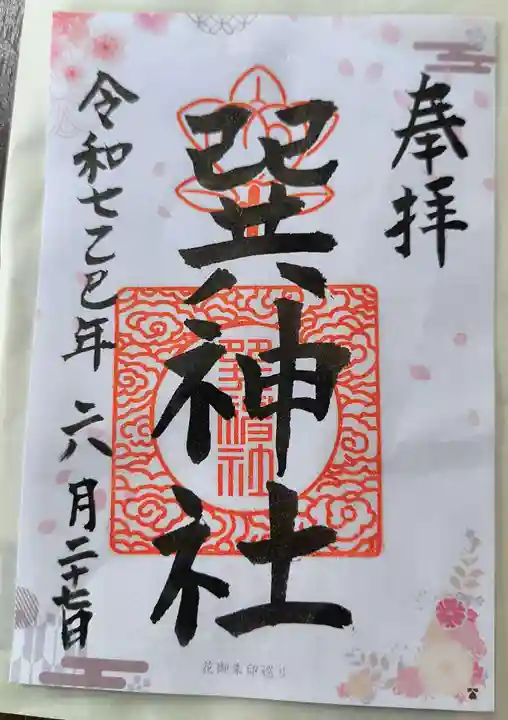 奉拝
巽神社
巽神社
令和七乙巳年 六月二十七日
花御朱印巡り